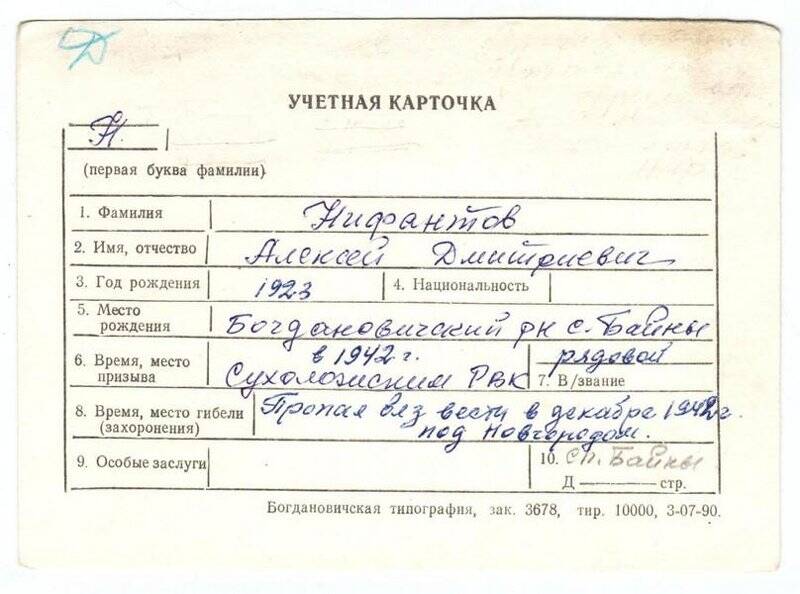 Д
УЧЕТНАЯ КАРТОЧКА
Н.
(первая буква фамилии)
1. Фамилия Нифантов
2. Имя, отчество Алексей Дмитриевич
3. Год рождения 1923 4. Национальность
5. Место рождения Богдановичский рн с. Байны
6. Время, место призыва в 1942 г. Сухоложским РВК
рядовой
7. В/звание
8. Время, место гибели (захоронения) Пропал без вести в декабре 1942 г.
под Новгородом.
9. Особые заслуги
10. сп. Байны
Д стр.
Богдановичская типография, зак. 3678, тир. 10000, 3-07-90.